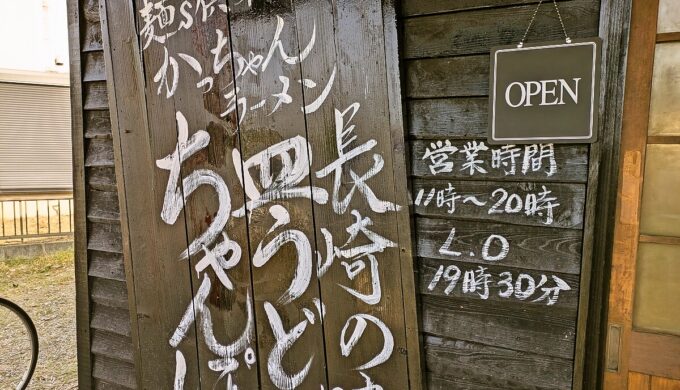 麺's倶
かっちゃん
ラーメン
長崎の
皿うど
ちゃんぽ
OPEN
営業時間
11時~20時
L.O
19時30分